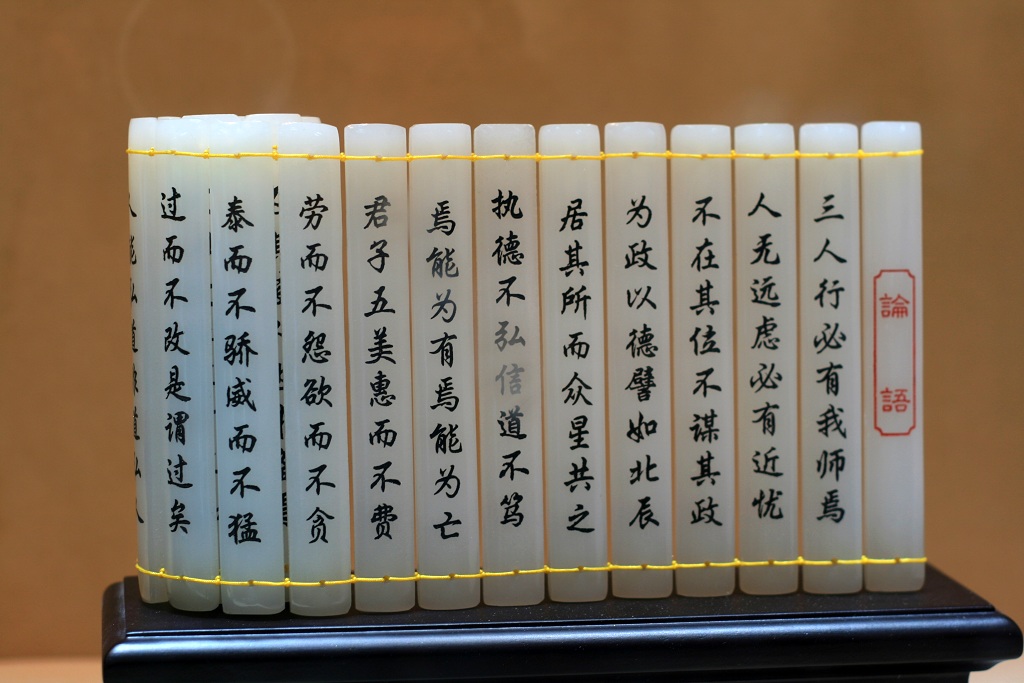 論語
三人行必有我师焉
人无远虑必有近忧
不在其位不谋其政
为政以德譬如北辰
居其所而众星共之
执德不弘信道不笃
焉能为有焉能为亡
君子五美惠而不费
劳而不怨欲而不贪
泰而不骄威而不猛
过而不改是谓过矣
人能弘道非道弘人